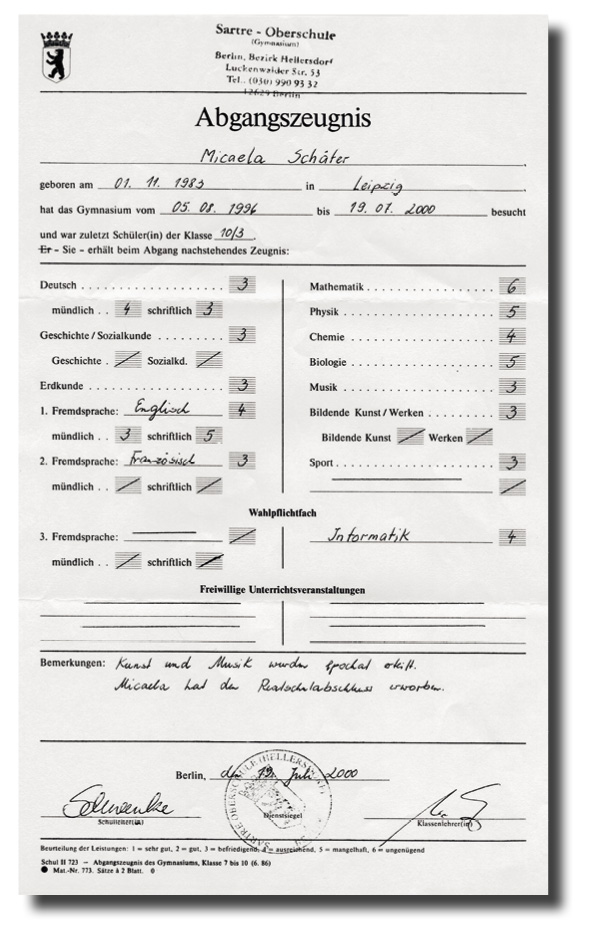 Sartre - Oberschule
(Gymnasium)
Berlin, Bezirk Hellersdorf
Luckenwalder Str. 53
Tel.. (030) 990 93 32
12629 Berlin
Abgangszeugnis
Micaela Schäfer
geboren am 01. 11. 1983 in Leipzig
hat das Gymnasium vom 05. 08. 1996 bis 19. 07. 2000 besucht
und war zuletzt Schüler(in) der Klasse 10/3.
Er – Sie – erhält beim Abgang nachstehendes Zeugnis:
Deutsch 3
mündlich . . 4 schriftlich 3
Geschichte/Sozialkunde 3
Geschichte . Sozialkd.
Erdkunde 3
1. Fremdsprache: Englisch 4
mündlich . . 3 schriftlich 5
2. Fremdsprache: Französisch 3
mündlich . . schriftlich
Mathematik 6
Physik 5
Chemie 4
Biologie 5
Musik 3
Bildende Kunst/Werken 3
Bildende Kunst Werken
Sport 3
Wahlpflichtfach
3. Fremdsprache:
mündlich . . schriftlich
Informatik 4
Freiwillige Unterrichtsveranstaltungen
Bemerkungen: Kunst und Musik wurden epochal erteilt.
Micaela hat den Realschulabschluss erworben.
Berlin, den 19. Juli 2000
SARTRE OBERSCHULE (HELLERSDORF)
Dienstsiegel
Schwenke
Schulleiter(in)
Klassenlehrer(in)
Beurteilung der Leistungen: 1 = sehr gut, 2 = gut, 3 = befriedigend, 4 = ausreichend, 5 = mangelhaft, 6 = ungenügend
Schul II 723 – Abgangszeugnis des Gymnasiums, Klasse 7 bis 10 (6. 86)
Mat.-Nr. 773. Sätze à 2 Blatt. 0